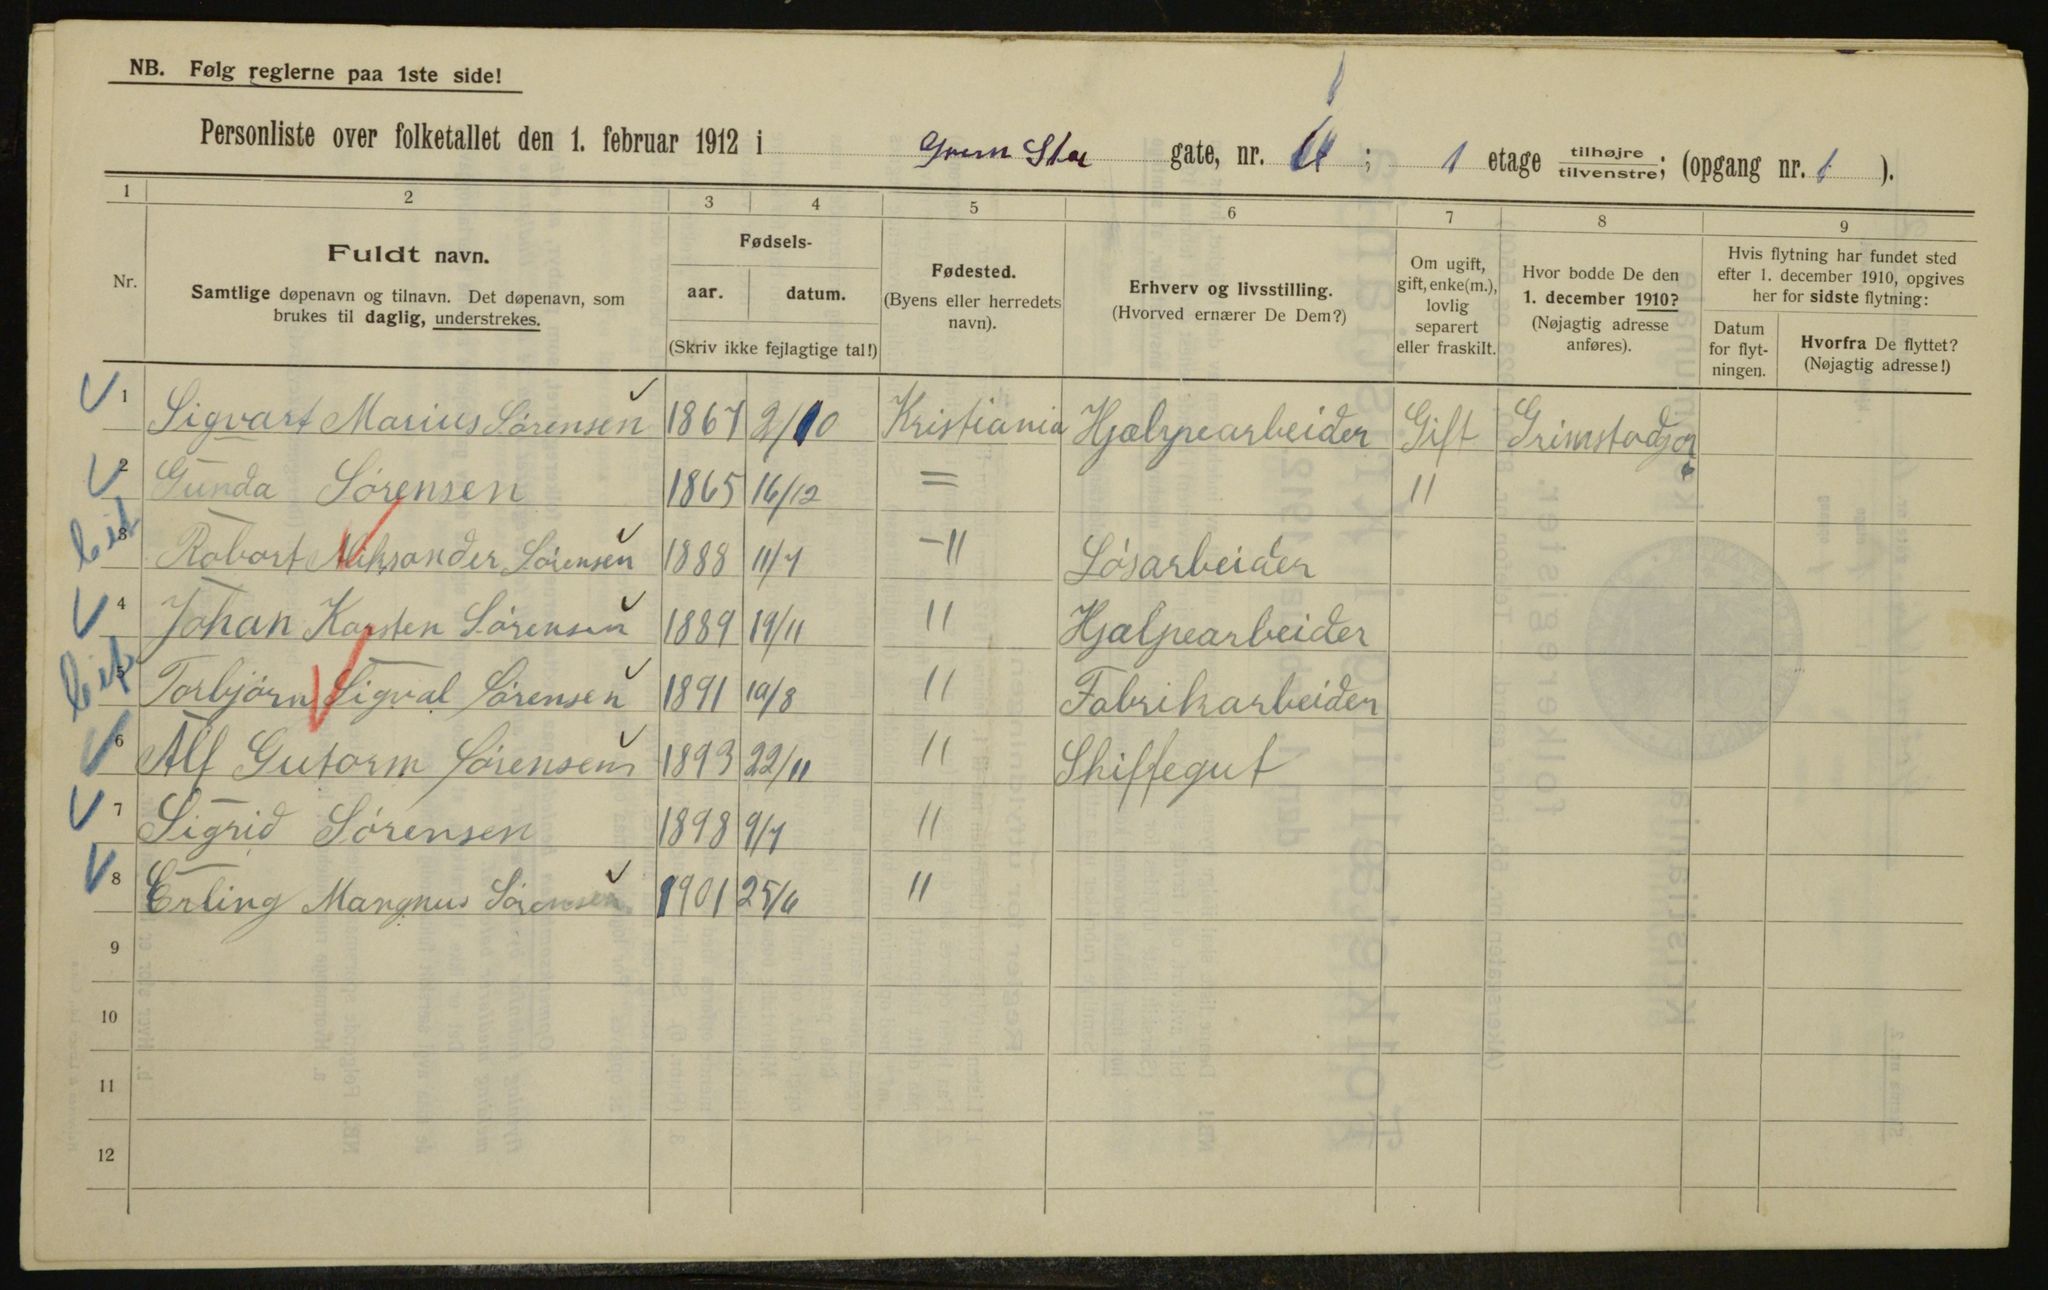 NB. Følg reglerne paa 1ste side!
Personliste over folketallet den 1. februar 1912 i gate, nr. ; 1 etage tilhøjre tilvenstre; (opgang nr. 1 ).
1 2 3 4 5 6 7 8 9
Nr.
Fuldt navn.
Samtlige døpenavn og tilnavn. Det døpenavn, som
brukes til daglig, understrekes.
Fødsels-
aar. datum.
(Skriv ikke fejlagtige tal!)
Fødested.
(Byens eller herredets
navn).
Erhverv og livsstilling.
(Hvorved ernærer De Dem?)
Om ugift,
gift, enke(m.),
lovlig
separert
eller fraskilt.
Hvor bodde De den
1. december 1910?
(Nøjagtig adresse
anføres).
Hvis flytning har fundet sted
efter 1. december 1910, opgives
her for sidste flytning:
Datum
for flyt-
ningen.
Hvorfra De flyttet?
(Nøjagtig adresse!)
1 Sigvart Marius Sørensen 1867 2/10 Kristiania Hjælpearbeider Gift
2 Gunda Sørensen 1865 16/12 = "
3 Robart Aleksander Sørensen 1888 11/7 -" Løsarbeider
4 Johan Karsten Sørensen 1889 19/11 " Hjælpearbeider
5 Torbjørn Sigval Sørensen 1891 10/8 " Fabrikarbeider
6 Alf Gutorm Sørensen 1893 22/11 " Skiffegut
7 Sigrid Sørensen 1898 9/7 "
8 Erling Mangnus Sørensen 1901 25/6 "
9
10
11
12